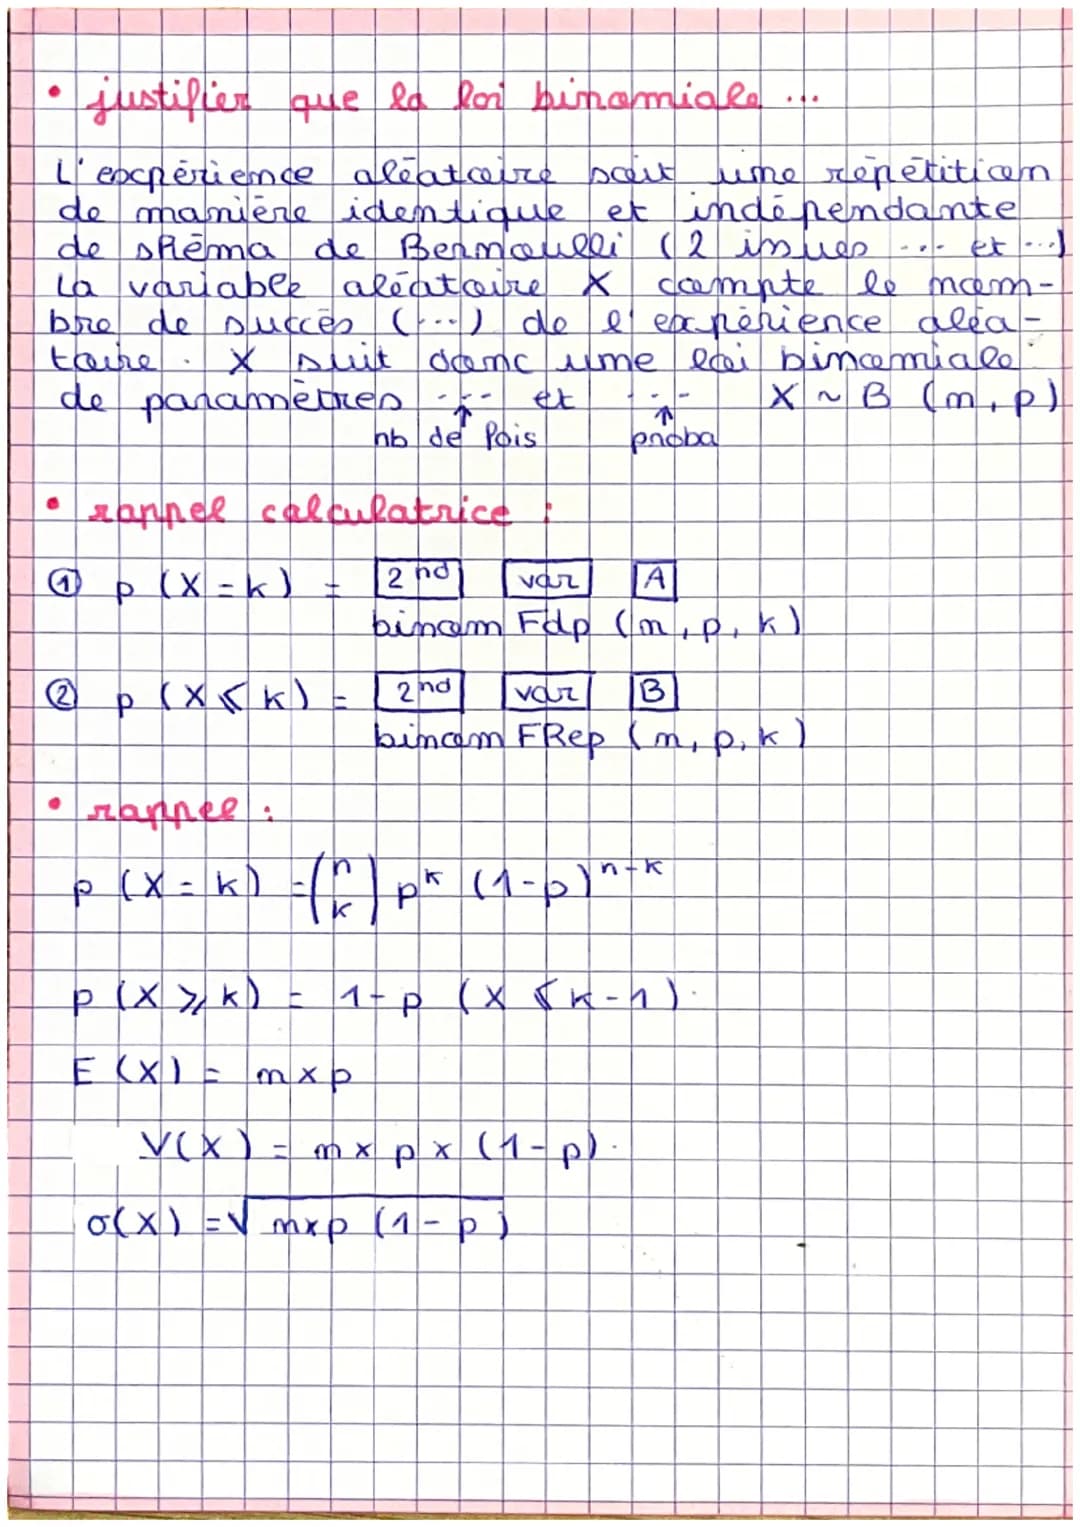 • justifier que la loi binomiale ...
L'expérience aléatoire soit une répétition
de manière identique et indépendante
de shéma de Bernoulli (2 issues ... et ...)
La variable aléatoire X compte le nom-
bre de succès (...) de l'expérience aléa-
toire. X suit donc une loi binomiale
de paramètres ... et ... X ~ B (n, p)
↑ nb de fois ↑ proba
• rappel calculatrice :
① p (X = k) = 2nd var A
binom Fdp (n, p, k)
② p (X ⩽ k) = 2nd var B
binom FRep (n, p, k)
• rappel :
p (X = k) = (n k) p^k (1-p)^n-k
p (X ⩾ k) = 1-p (X ⩽ k-1).
E (X) = n x p
V(X) = n x p x (1-p).
σ(X) = √nxp (1-p)